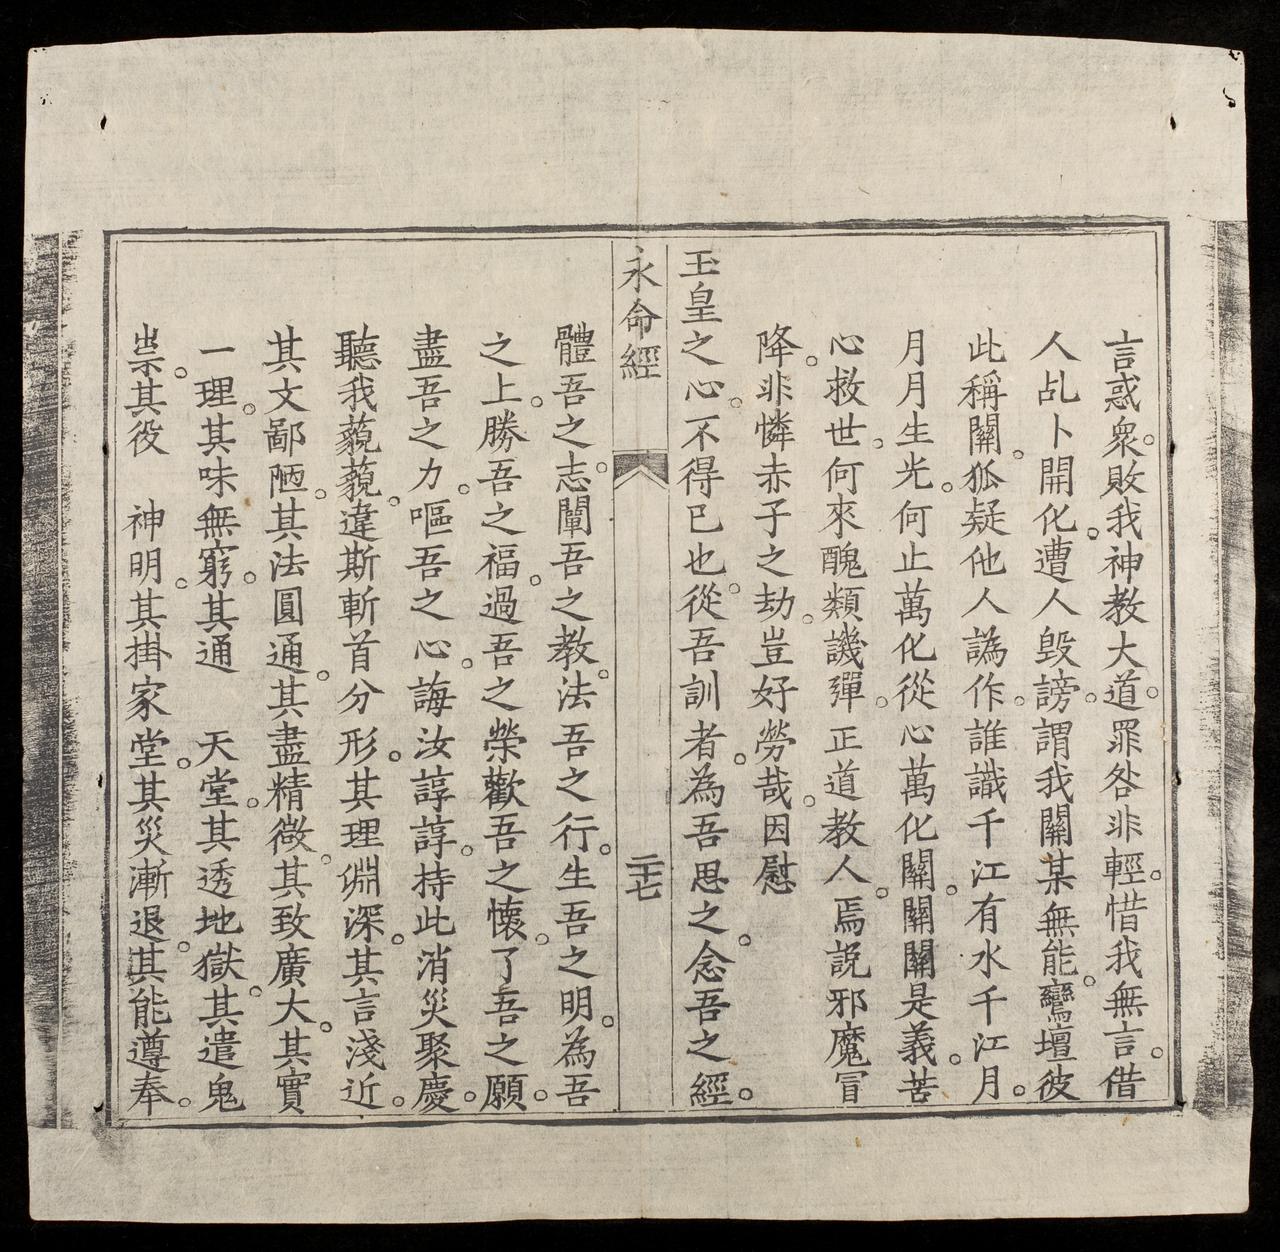 言惑衆。敗我神教大道。罪咎非輕。惜我無言。借
人乩卜開化。遭人毀謗。謂我關某無能。鸞壇彼
此稱關。狐疑他人譌作。誰識千江有水千江月。
月月生光。何止萬化從心萬化關。關關是義。苦
心救世。何來醜類譏彈。正道教人。焉說邪魔冒
降。非憐赤子之劫。豈好勞哉。因慰
玉皇之心。不得已也。從吾訓者。為吾思之。念吾之經。
永命經 二十七
體吾之志。闡吾之教。法吾之行。生吾之明。為吾
之上。勝吾之福。過吾之榮。歡吾之懷。了吾之願。
盡吾之力。嘔吾之心。誨汝諄諄。持此消災聚慶。
聽我藐藐。違斯斬首分形。其理淵深。其言淺近。
其文鄙陋。其法圓通。其盡精微。其致廣大。其實
一理。其味無窮。其通 天堂。其透地獄。其遣鬼
祟。其役 神明。其掛家堂。其災漸退。其能遵奉。